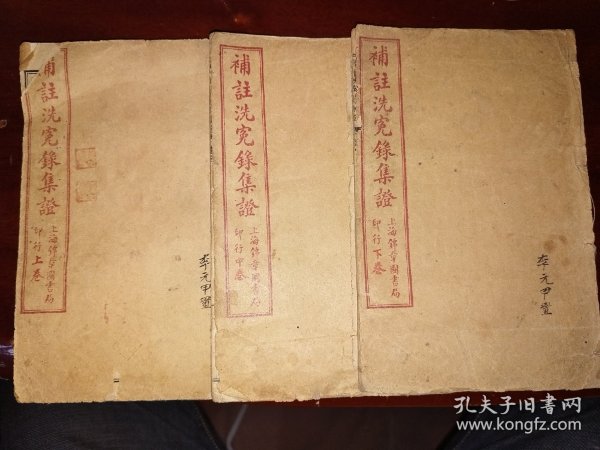 補註洗冤錄集證
上海錦章圖書局
印行上卷
李元甲置
補註洗冤錄集證
上海錦章圖書局
印行中卷
補註洗冤錄集證
上海錦章圖書局
印行下卷
李元甲置
孔夫子旧书网
www.kongfz.com